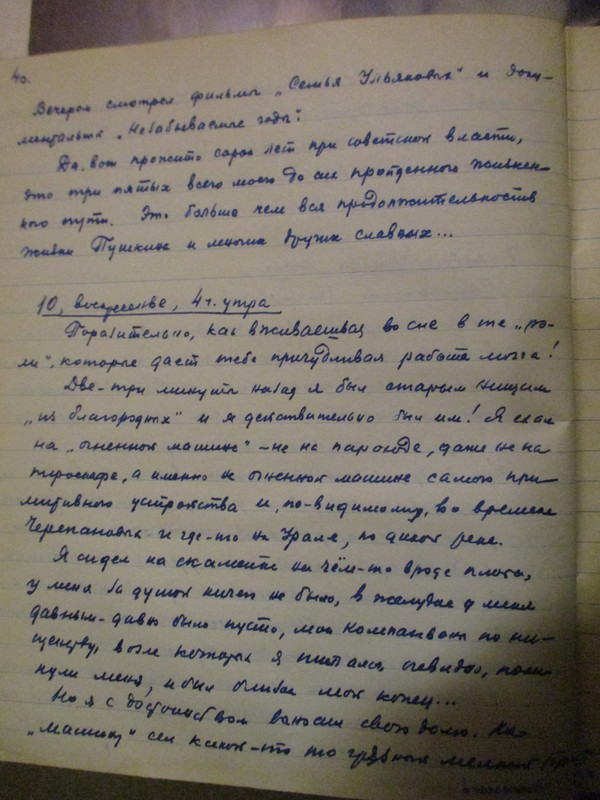 40.
Вечером смотрел фильмы „Семья Ульяновых" и доку-
ментальный „Незабываемые годы".
Да, вот прожито сорок лет при советской власти,
это три пятых всего моего до сих пройденного жизнен-
ного пути. Это больше чем вся продолжительность
жизни Пушкина и многих других славных...
10, воскресенье, 4 ч. утра
Поразительно, как вживаешься во сне в те „ро-
ли", которые даёт тебе причудливая работа мозга!
Две-три минуты назад я был старым нищим
„из благородных" и я действительно был им! Я ехал
на „огненной машине" – не на пароходе, даже не на
пироскафе, а именно на огненной машине самого при-
митивного устройства и, по-видимому, во времена
Черепановых и где-то на Урале, по дикой реке.
Я сидел на скамейке на чём-то вроде плота,
у меня за душой ничего не было, в желудке у меня
давным-давно было пусто, мои компаньоны по ни-
щенству, возле которых я питался, очевидно, поки-
нули меня, и был близок мой конец...
Но я с достоинством выносил свою долю. На
„машину" сел какой-то то грузный мелкий